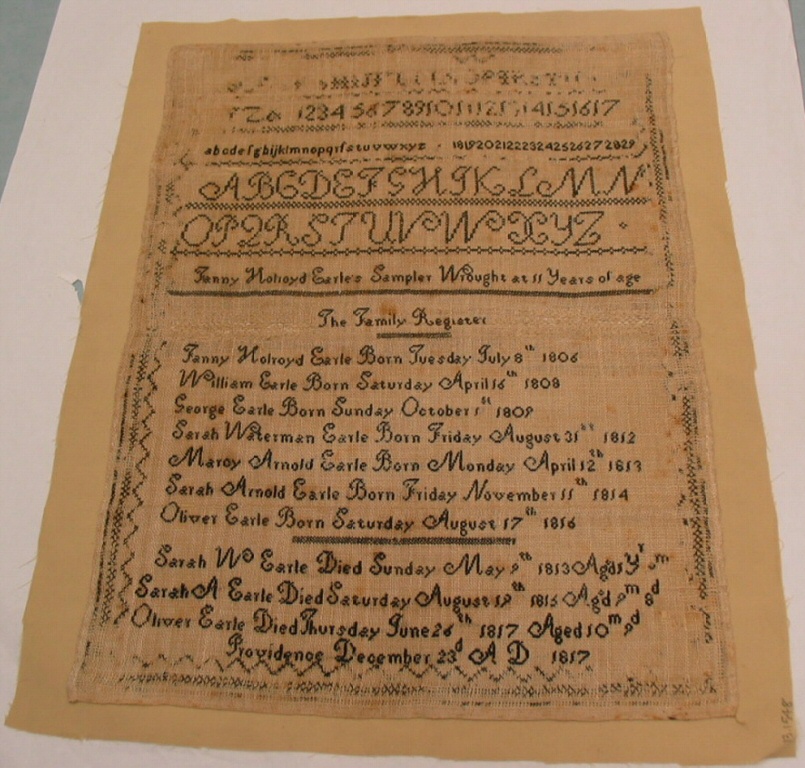 Z & 1234567891011121314151617
abcdefghijklmnopqrſstuvwxyz 181920212223242526272829
ABCDEFGHIKLMN
OPQRSTUVWXYZ
Fanny Holroyd Earle's Sampler Wrought at 11 Years of age
The Family Register
Fanny Holroyd Earle Born Tuesday July 8th 1806
William Earle Born Saturday April 16th 1808
George Earle Born Sunday October 1st 1809
Sarah Waterman Earle Born Friday August 31 1812
Marcy Arnold Earle Born Monday April 12th 1813
Sarah Arnold Earle Born Friday November 11th 1814
Oliver Earle Born Saturday August 17th 1816
Sarah W Earle Died Sunday May 9th 1813
Sarah A Earle Died Saturday August 19th 1815 Agd 9m 8d
Oliver Earle Died Thursday June 26th 1817 Aged 10m 9d
Providence December 23d A D 1817